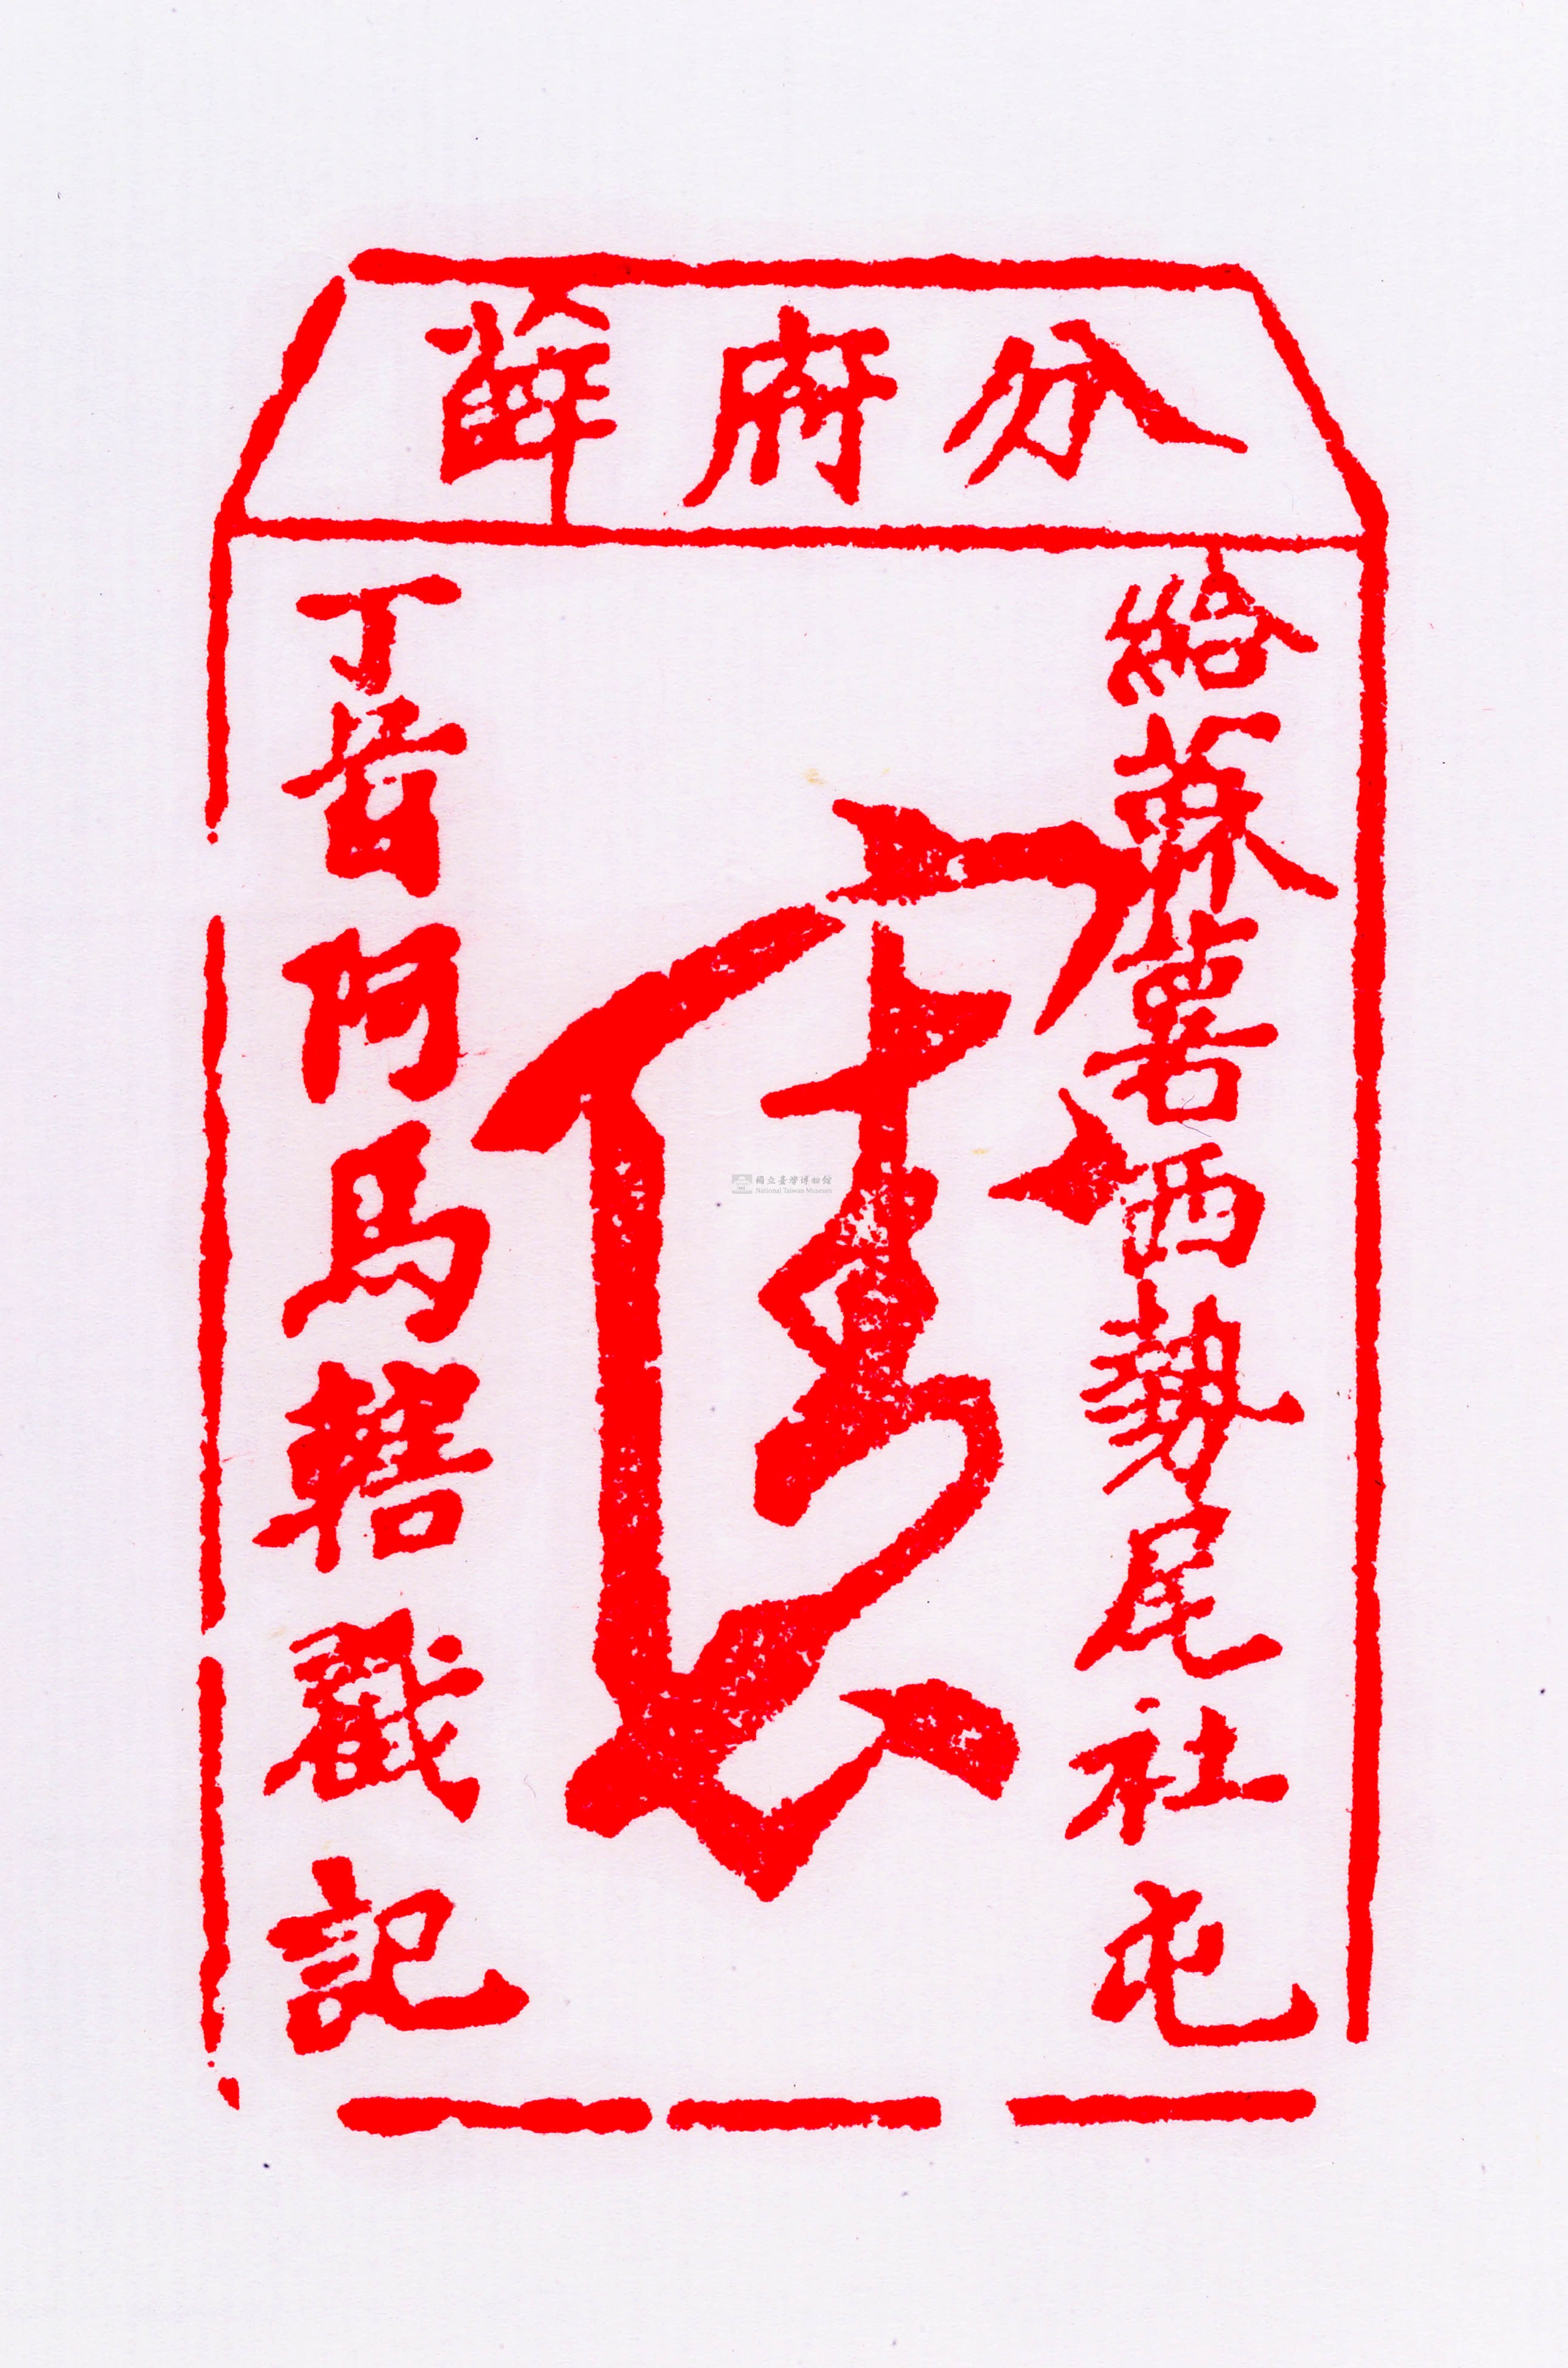 分府薛
給蔴薯西勢尾社屯
丁首阿馬轄戳記
國立臺灣博物館
National Taiwan Museum